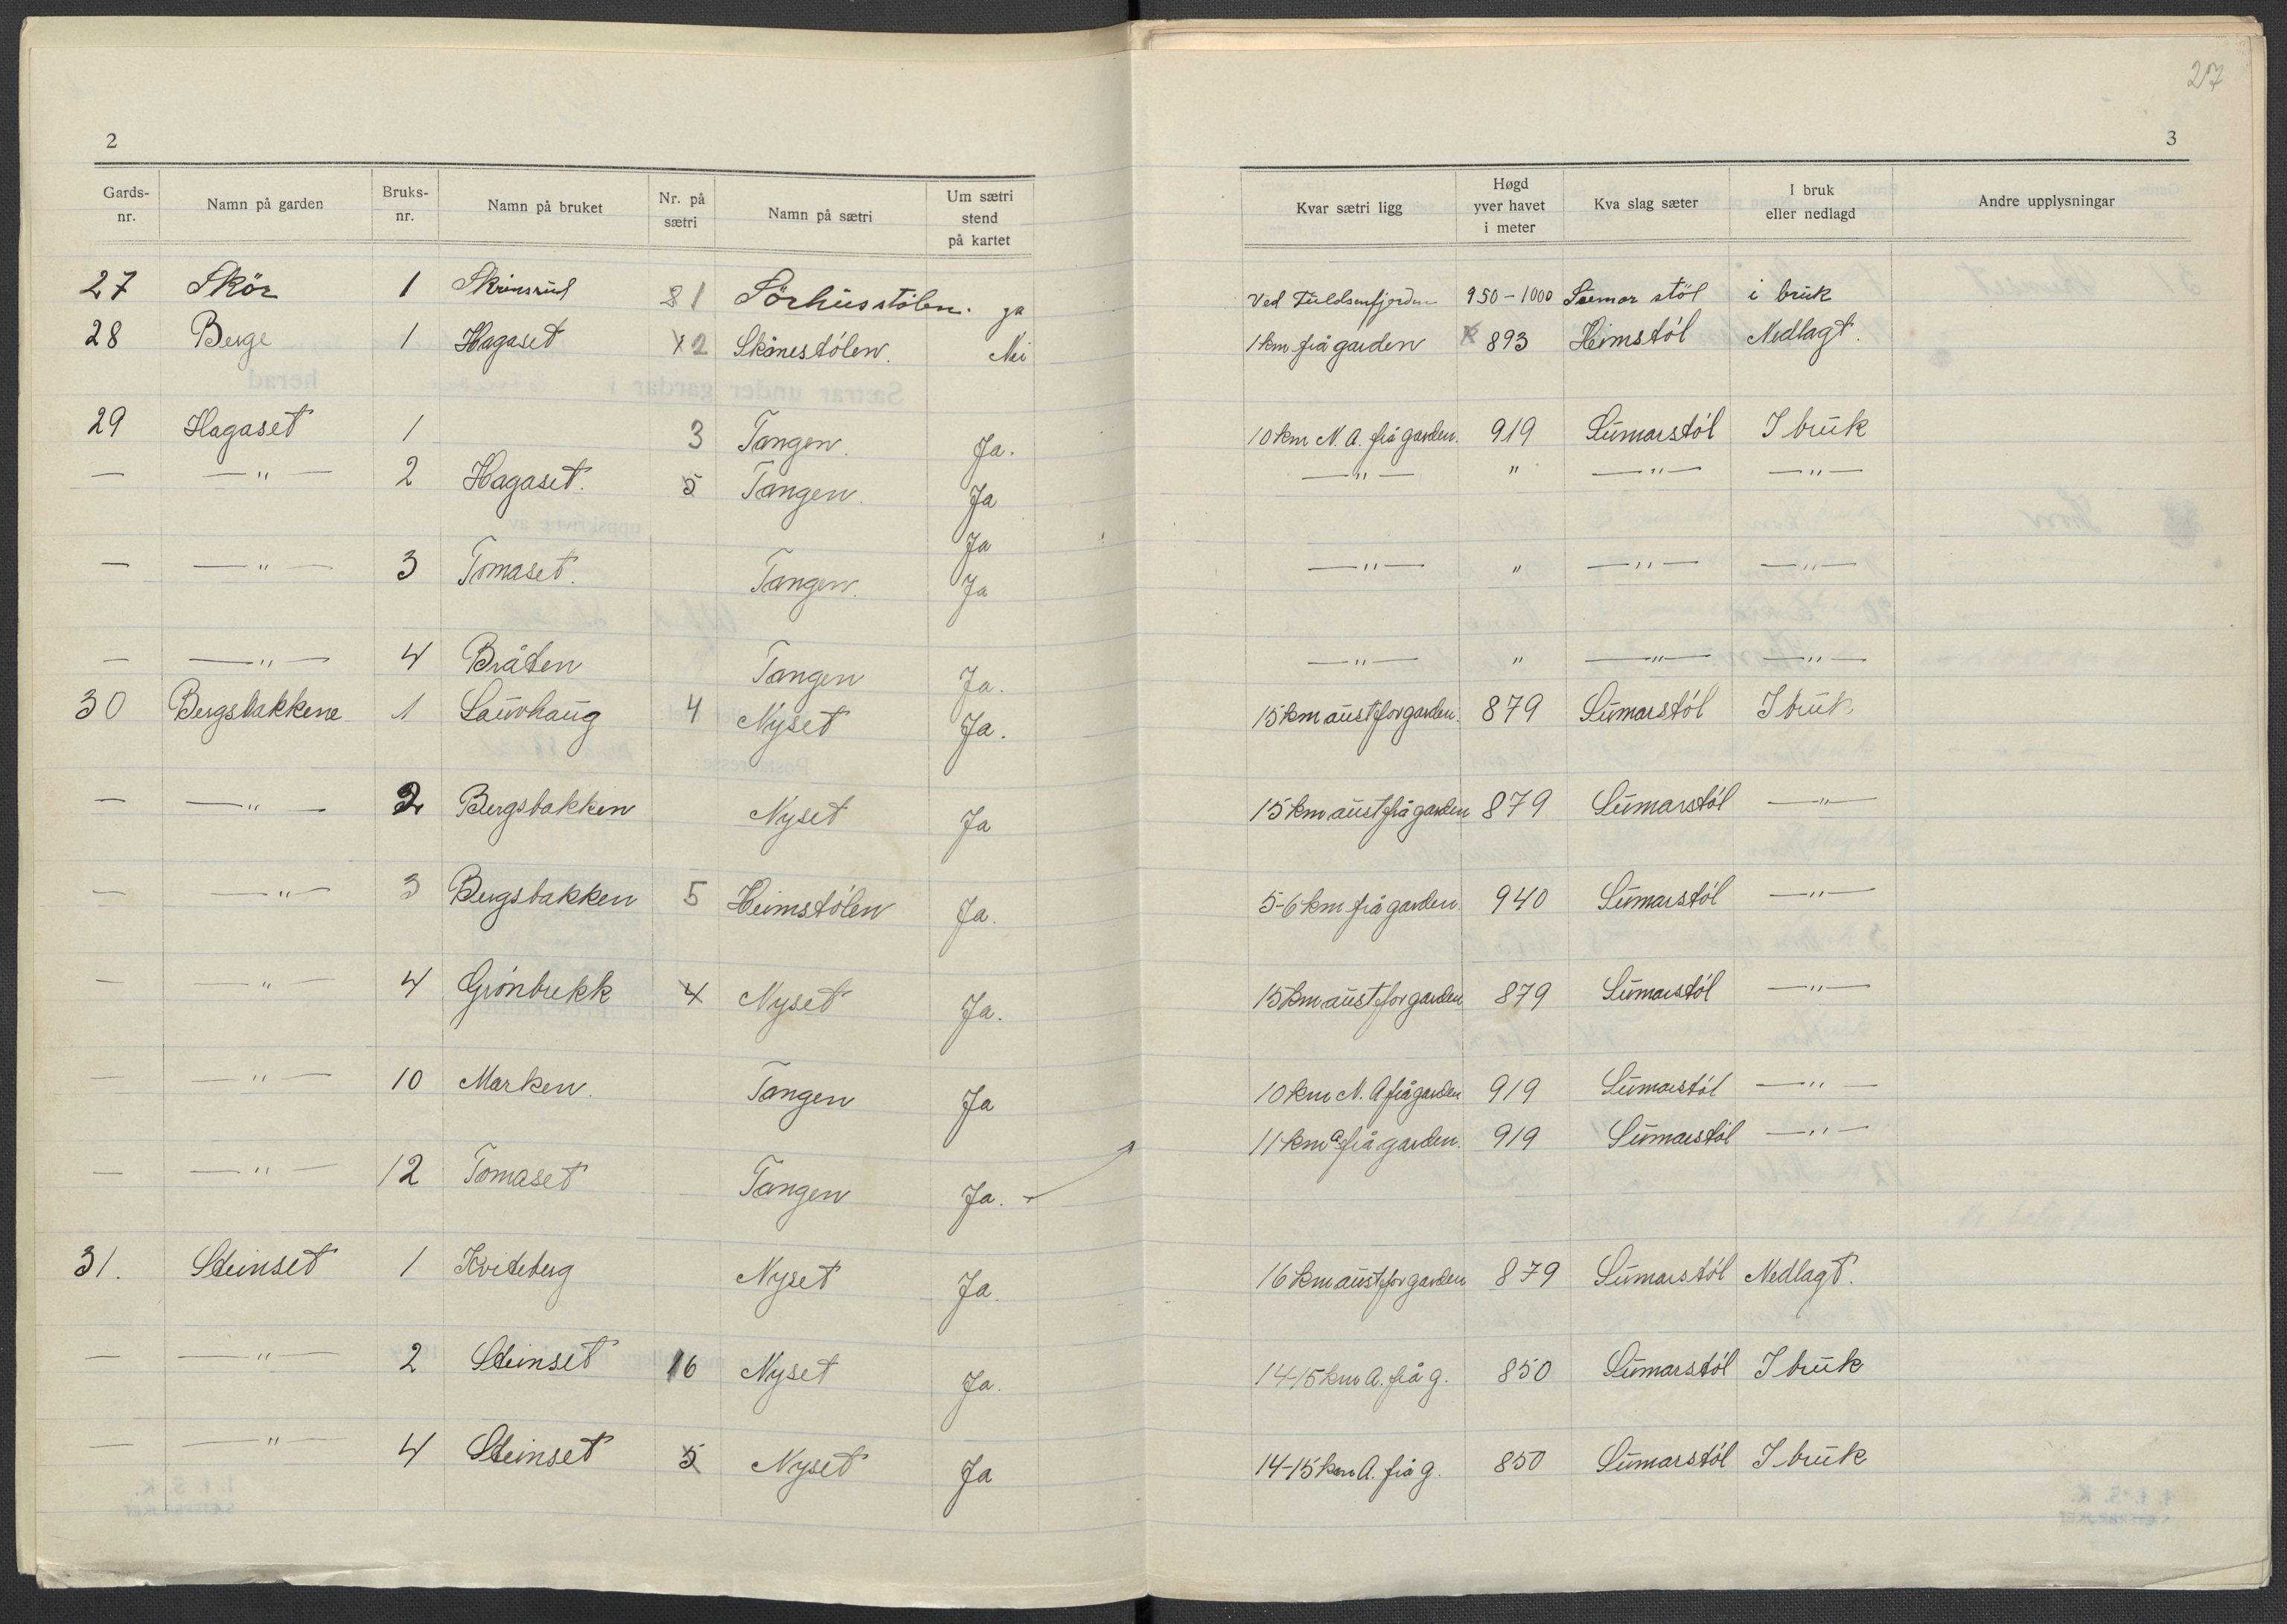 27
2
3
Gards-nr. Namn på garden Bruks-nr. Namn på bruket Nr. på sætri Namn på sætri Um sætri stend på kartet Kvar sætri ligg Høgd yver havet i meter Kva slag sæter I bruk eller nedlagd Andre upplysningar
27 Skör 1 Skrinsrud 81 Sörhusstölen. ja Ved 950-1000 Sumar stöl i bruk
28 Berge 1 Hagaset 2 Skinestólen. Nei 1 km frå garden 893 Heimstól Nedlagt.
29 Hagaset 1 3 Tangen. Ja. 10 km N. A. frå garden. 919 Sumarstól I bruk
— —"— 2 Hagaset. 5 Tangen. Ja —"— " —"— —"—
Ja
— —"— 3 Tomaset. Tangen. Ja —"— " —"— —"—
— —"— 4 Bråten Tangen Ja. —"— " —"— —"—
30 Bergsbakkene 1 Lauvhaug 4 Nyset Ja. 15 km aust for garden. 879 Sumarstól I bruk.
— —"— 2 Bergsbakken Nyset Ja 15 km aust frå garden 879 Sumarstól —"—
— —"— 3 Bergsbakken 5 Heimstólen Ja. 5-6 km frå garden. 940 Sumarstól —"—
— —"— 4 Grónbrekk 4 Nyset Ja. 15 km aust for garden 879 Sumarstól —"—
— —"— 10 Marken. Tangen Ja 10 km N. A frå garden 919 Sumarstól —"—
— —"— 12 Tomaset Tangen Ja. 11 km a. frå garden. 919 Sumarstól —"—
31. Steinset 1 Kviteberg Nyset Ja. 16 km aust for garden 879 Sumarstól Nedlagt.
— —"— 2 Steinset 16 Nyset Ja. 14-15 km A. frå g. 850 Sumarstól I bruk
— —"— 4 Steinset 5 Nyset Ja 14-15 km A. frå g. 850 Sumarstól I bruk